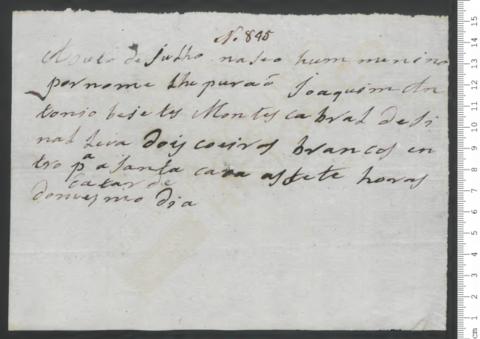 N. 845
Aouto de julho naseo hum menino
por nome lhe puraõ Joaquim An
tonio Montes cabral de si
nal leva dois coeiros brancos en
tro pª a santa caza as sete horas
da tarde
domesmo dia